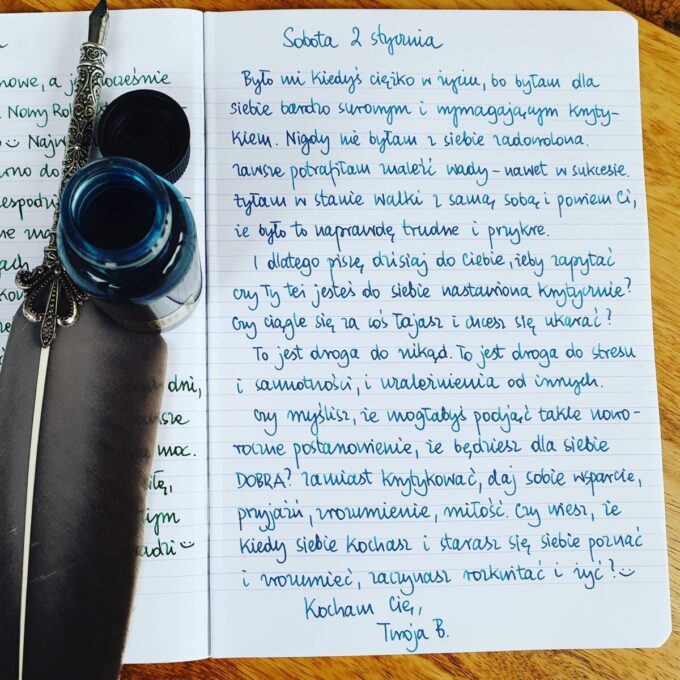 nowe, a
Nowy Rok
dni,
a moc.
Sobota 2 stycznia
Było mi kiedyś ciężko w życiu, bo byłam dla
siebie bardzo surowym i wymagającym kryty-
kiem. Nigdy nie byłam z siebie zadowolona.
Zawsze potrafiłam znaleźć wady – nawet w sukcesie.
Żyłam w stanie walki z samą sobą i powiem Ci,
że było to naprawdę trudne i przykre.
I dlatego piszę dzisiaj do Ciebie, żeby zapytać
czy Ty też jesteś do siebie nastawiona krytycznie?
Czy ciągle się za coś łajasz i chcesz się ukarać?
To jest droga do nikąd. To jest droga do stresu
i samotności, i uzależnienia od innych.
Czy myślisz, że mogłabyś podjąć takie nowo-
roczne postanowienie, że będziesz dla siebie
DOBRA? Zamiast krytykować, daj sobie wsparcie,
przyjaźń, zrozumienie, miłość. Czy wiesz, że
kiedy siebie kochasz i starasz się siebie poznać
i zrozumieć, zaczynasz rozkwitać i żyć?
Kocham Cię,
Twoja B.